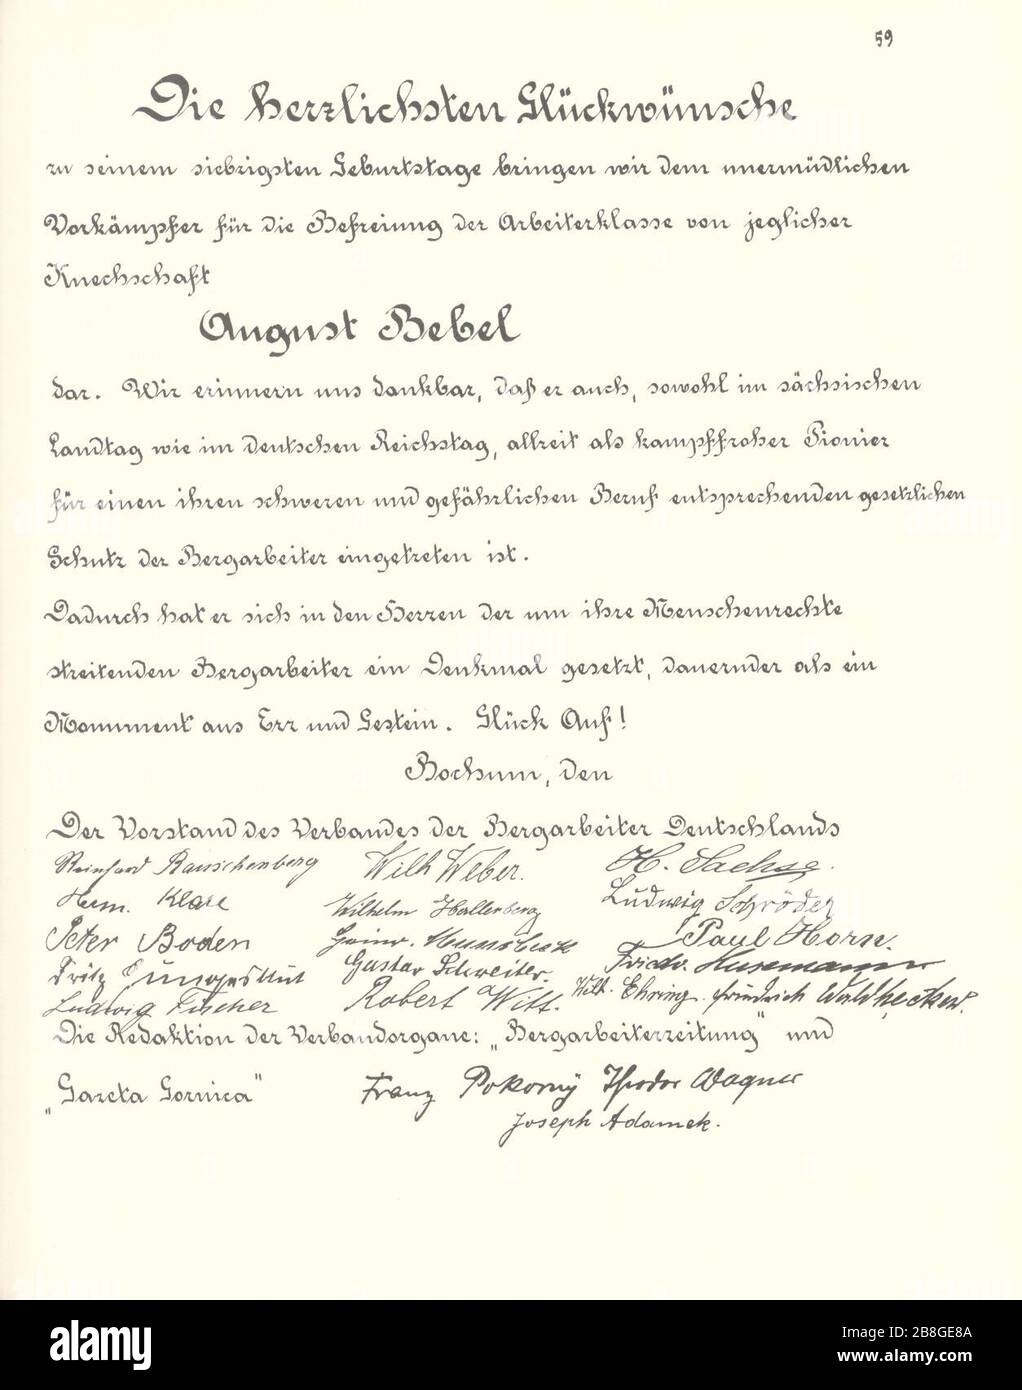 59
Die herzlichsten Glückwünsche
zu seinem siebzigsten Geburtstage bringen wir dem unermüdlichen
Vorkämpfer für die Befreiung der Arbeiterklasse von jeglicher
Knechschaft
August Bebel
dar. Wir erinnern uns dankbar, daß er auch, sowohl im sächsischen
Landtag wie im deutschen Reichstag, allzeit als kampffroher Pionier
für einen ihren schweren und gefährlichen Beruf entsprechenden gesetzlichen
Schutz der Bergarbeiter eingetreten ist.
Dadurch hat er sich in den Herzen der um ihre Menschenrechte
streitenden Bergarbeiter ein Denkmal gesetzt, dauernder als ein
Monument aus Erz und Gestein. Glück Auf!
Bochum, den
Der Vorstand des Verbandes der Bergarbeiter Deutschlands
Reinhard Rauschenberg Wilh Weber. H. Sachse.
Herm. Klare Wilhelm Hallenberg Ludwig Schröder
Peter Boden Heinr. Paul Horn.
Fritz Gustav Schweiter. Friedr. Husemann
Ludwig Fischer Robert Witt. Wilh. Ehring. Friedrich Waldhecker.
Die Redaktion der Verbandorgane: „Bergarbeiterzeitung" und
„Gazeta Gornica" Franz Pokorny Theodor Wagner
Joseph Adamek.
alamy
Image ID: 2B8GE8A
www.alamy.com